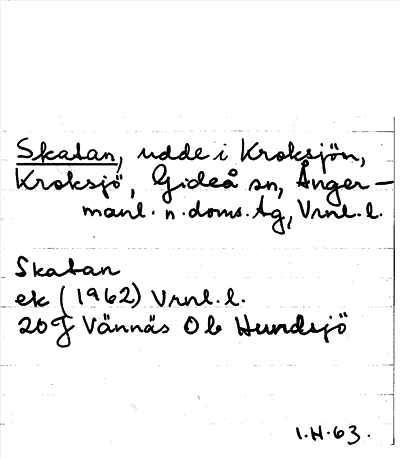 Skatan, udde i Kroksjön,
Kroksjö, Gideå sn, Ånger-
manl. n. doms. tg, Vrnl. l.
Skatan
ek (1962) Vrnl. l.
20J Vännäs Ob Hundsjö
I.H.63.